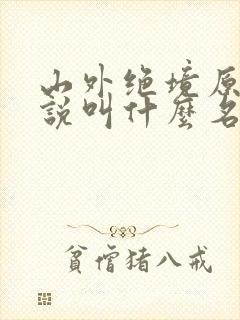 山外绝境原
說叫什麼名
貧僧猪八戒